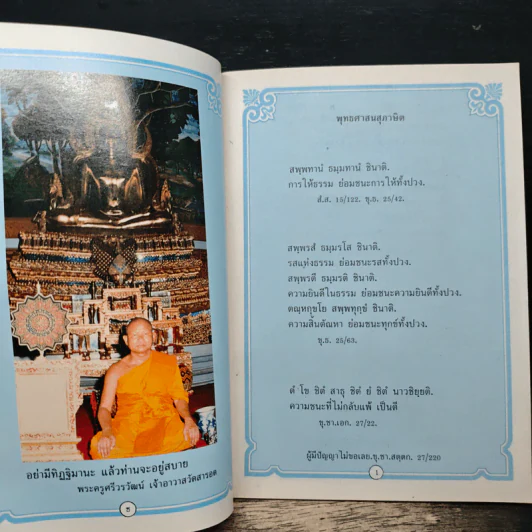 อย่ามีทิฏฐิมานะ แล้วท่านจะอยู่สบาย
พระครูศรีวรวัฒน์ เจ้าอาวาสวัดสารอด
ธ
พุทธศาสนสุภาษิต
สพฺพทานํ ธมฺมทานํ ชินาติ.
การให้ธรรม ย่อมชนะการให้ทั้งปวง.
สํ.ส. 15/122. ขุ.ธ. 25/42.
สพฺพรสํ ธมฺมรโส ชินาติ.
รสแห่งธรรม ย่อมชนะรสทั้งปวง.
สพฺพรตึ ธมฺมรติ ชินาติ.
ความยินดีในธรรม ย่อมชนะความยินดีทั้งปวง.
ตณฺหกฺขโย สพฺพทุกฺขํ ชินาติ.
ความสิ้นตัณหา ย่อมชนะทุกข์ทั้งปวง.
ขุ.ธ. 25/63.
ตํ โข ชิตํ สาธุ ชิตํ ยํ ชิตํ นาวชิยฺยติ.
ความชนะที่ไม่กลับแพ้ เป็นดี
ขุ.ชา.เอก. 27/22.
ผู้มีปัญญาไม่ขอเลย.ขุ.ชา.สตฺตก. 27/220
1